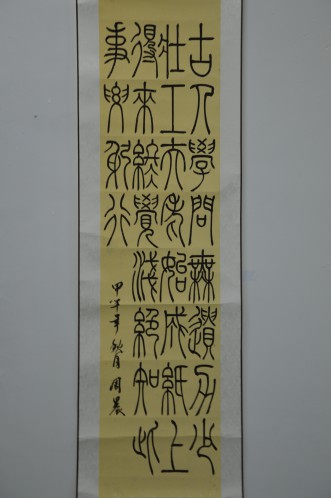 古人學問無遺力少
壯工夫老始成紙上
得來終覺淺絕知此
事要躬行
甲午年秋月周晨